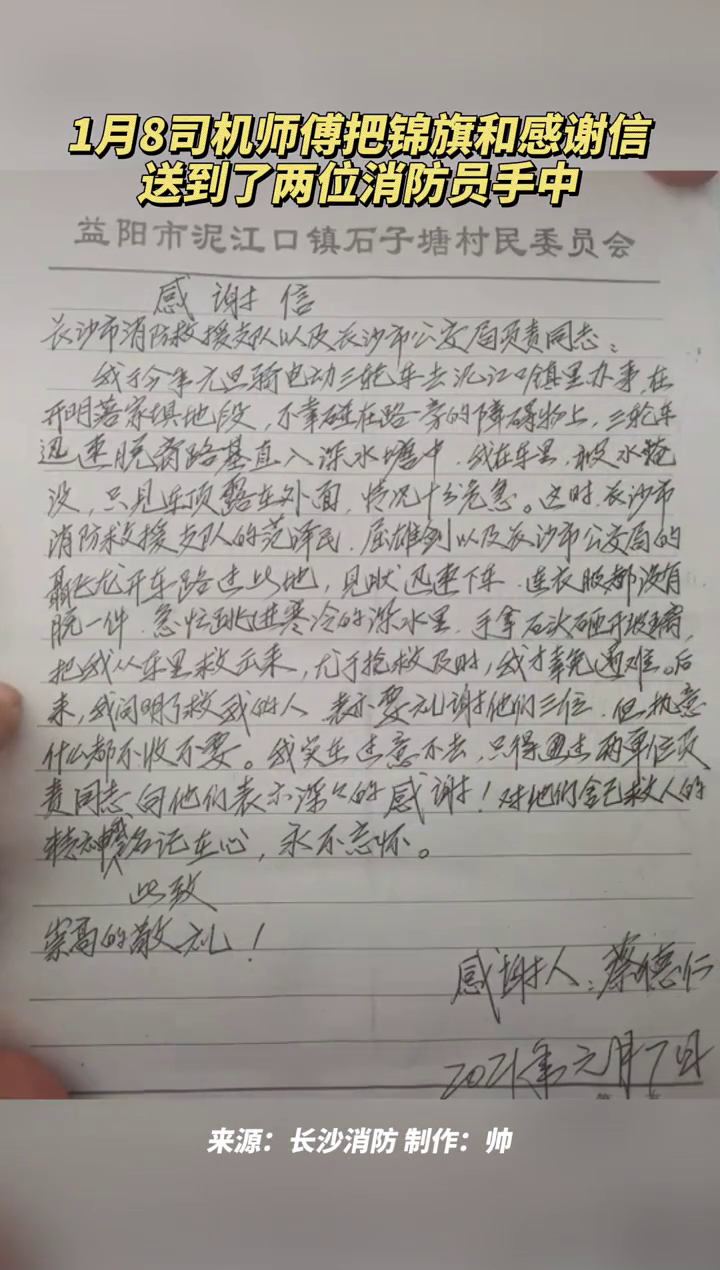 1月8司机师傅把锦旗和感谢信
送到了两位消防员手中
益阳市泥江口镇石子塘村民委员会
感谢信
长沙市消防救援支队以及长沙市公交局负责同志：
我于今年元旦骑电动三轮车去泥江口镇里办事，在
开明蒋家坝地段，不幸碰在路旁的障碍物上，三轮车
迅速脱离路基直入深水塘中，我在车里，被水淹
没，只见车顶露在外面，情况十分危急。这时，长沙市
消防救援支队的范泽民、屈雄钊以及长沙市公交局的
聂飞龙开车路过此地，见状迅速下车，连衣服都没有
脱一件，急忙跳进寒冷的深水里，手拿石头砸开玻璃，
把我从车里救出来，尤于抢救及时，我才幸免遇难。后
来，我问明了救我的人，表示要礼谢他们三位，但执意
什么都不收不要。我实在过意不去，只得通过两单位负
责同志向他们表示深深的感谢！对他们舍己救人的
精神我铭记在心，永不忘怀。
此致
崇高的敬礼！
感谢人：蔡德仁
2021年元月7日
来源：长沙消防 制作：帅